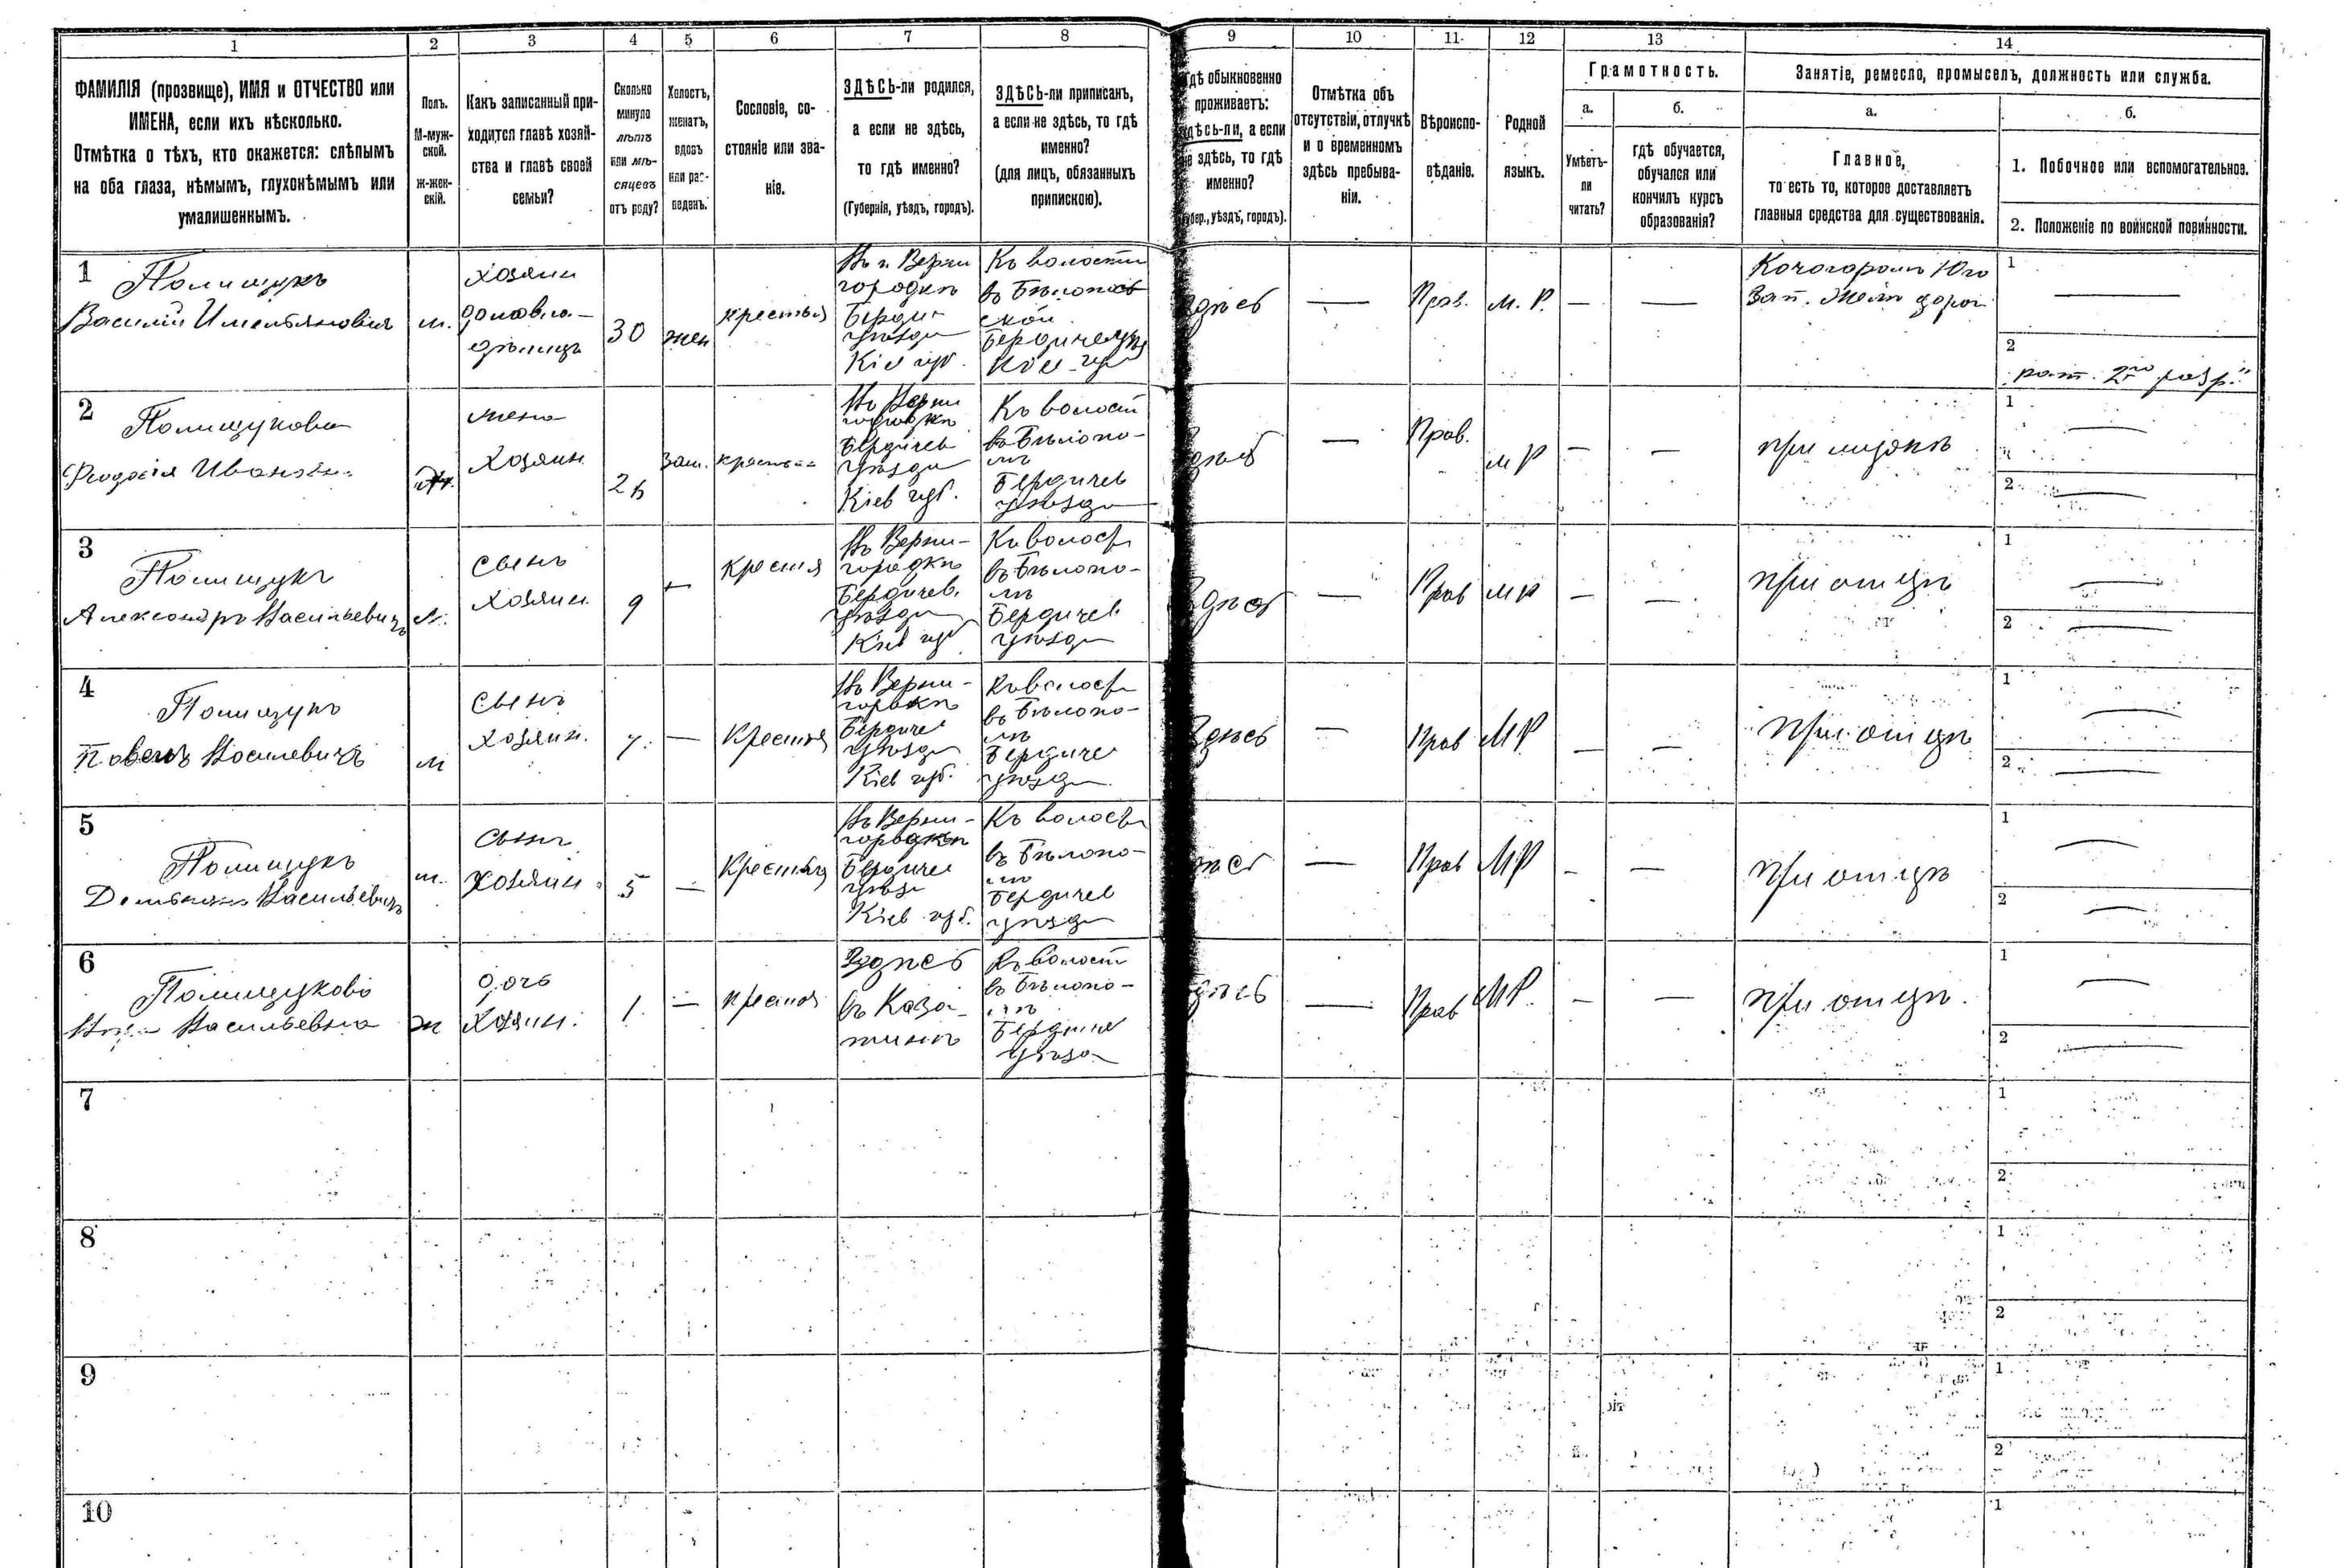 1
2
3
4
5
6
7
8
9
10
11
12
13
14
ФАМИЛІЯ (прозвище), ИМЯ и ОТЧЕСТВО или
ИМЕНА, если ихъ нѣсколько.
Отмѣтка о тѣхъ, кто окажется: слѣпымъ
на оба глаза, нѣмымъ, глухонѣмымъ или
умалишеннымъ.
Полъ.
М-муж-
ской.
Ж-жен-
скій.
Какъ записанный при-
ходится главѣ хозяй-
ства и главѣ своей
семьи?
Сколько
минуло
лѣтъ
или мѣ-
сяцевъ
отъ роду?
Холостъ,
женатъ,
вдовъ
или раз-
веденъ.
Сословіе, со-
стояніе или зва-
ніе.
ЗДѢСЬ-ли родился,
а если не здѣсь,
то гдѣ именно?
(Губернія, уѣздъ, городъ).
ЗДѢСЬ-ли приписанъ,
а если не здѣсь, то гдѣ
именно?
(для лицъ, обязанныхъ
припискою).
гдѣ обыкновенно
проживаетъ:
здѣсь-ли, а если
не здѣсь, то гдѣ
именно?
(Губер., уѣздъ, городъ).
Отмѣтка объ
отсутствіи, отлучкѣ
и о временномъ
здѣсь пребыва-
ніи.
Вѣроиспо-
вѣданіе.
Родной
языкъ.
Грамотность.
а.
Умѣетъ-
ли
читать?
б.
гдѣ обучается,
обучался или
кончилъ курсъ
образованія?
Занятіе, ремесло, промыселъ, должность или служба.
а.
Главное,
то есть то, которое доставляетъ
главныя средства для существованія.
б.
1. Побочное или вспомогательное.
2. Положеніе по воинской повинности.
1
Полищукъ
Василій Имельяновичъ
м.
хозяин
домовла-
дѣлицъ
30
жен
крестья
Въ г. Верни
городкѣ
Берди-
уѣзда
Кіев губ.
Къ волости
въ Бѣлополь
ской
Бердиче уѣз
Кіев гу
Здѣсь
—
Прав.
М. Р.
—
—
Кочогаромъ Юго
Зап. Желѣ дорог
1
—
2
рат. 2го разр.
2
Полищукова
Феодосія Иван
Ж.
жена
Хозяин
26
Зам.
крестья
Въ Верни
городкѣ
Бердичев
уѣзда
Кіев губ.
Къ волост
въ Бѣлопо-
лѣ
Бердичев
уѣзда
Здѣсь
—
Прав.
М Р
—
—
при мужѣ
1
—
2
—
3
Полищукъ
Александръ Васильевичъ
М.
сынъ
Хозяин.
9
—
Крестя
Въ Верни-
городкѣ
Бердичев.
уѣзда
Кіев губ
Къ волост
въ Бѣлопо-
лѣ
Бердичев
уѣзда
Здѣсь
—
Прав
М Р
—
—
при отцѣ
1
—
2
—
4
Полищукъ
Павелъ Василевичъ
м
Сынъ
Хозяин.
7.
—
Крестья
Въ Верни-
городкѣ
Бердиче
уѣзда
Кіев губ.
Къ волост
въ Бѣлопо-
лѣ
Бердиче
уѣзда
Здѣсь
—
Прав
М Р
—
—
При отцѣ
1
—
2
—
5
Полищукъ
Васильевичъ
м.
Сынъ
Хозяин.
5
—
Крестья
Въ Верни-
городкѣ
Бердиче
уѣзд
Кіев губ.
Къ волост
въ Бѣлопо-
лѣ
Бердичев
уѣзда
Здѣсь
—
Прав
М Р
—
—
При отцѣ
1
—
2
—
6
Полищуково
Васильевна
ж
дочь
Хозяин.
1.
—
крестья
Здѣсь
въ Каза-
тинѣ
Къ волост
въ Бѣлопо-
лѣ
Бердиче
уѣзд
Здѣсь
—
Прав
М Р.
—
—
при отцѣ.
1
—
2
—
7
1
2
8
1
2
9
1
2
10
1